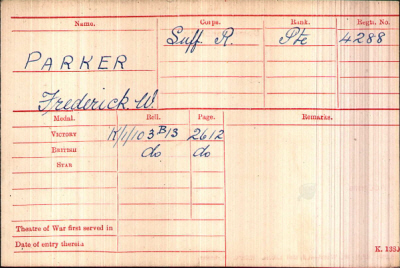 Name. Corps. Rank. Regtl. No.
PARKER Suff. R. Pte 4288
Frederick W.
Medal. Roll. Page. Remarks.
VICTORY K/1/103 B13 2612
BRITISH do do
STAR
Theatre of War first served in
Date of entry therein